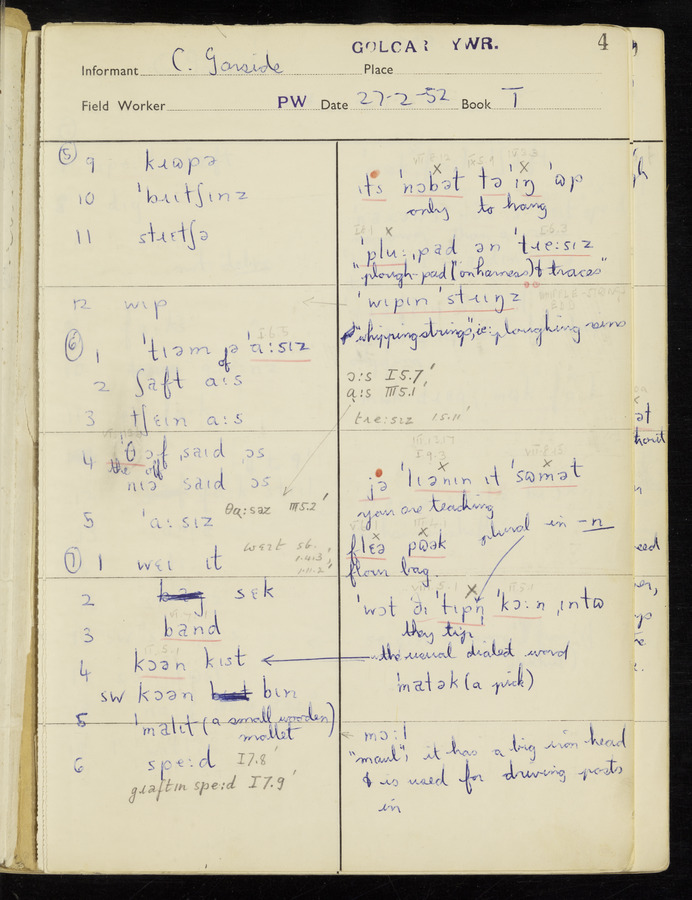 GOLCAR YWR.
4
Informant C. Garside Place
Field Worker PW Date 27-2-52 Book T
⑤ 9 kɹɷpə
10 ˈbɹɪtʃɪnz
11 stɹɛtʃə
12 wɪp
⑥ 1 ˈtɹəm
of
ˈaːsɪz
2 ʃaft aːs
3 tʃɛin aːs
4 ˈθ ɔf said ɔs
the off
nɪə said ɔs
5 ˈaːsɪz θaːsəz III5.2'
⑦ 1 wɛɪ ɪt
2 sɛk
3 band
4 kɔən kɪst
sw kɔən bɪn
5 ˈmalɪt (a small wooden)
mallet
6 speːd I7.8'
gɹaftɪn speːd I7.9'
ɪts ˈnɔbət tə ˈɪŋ ˈɷp
only to hang
ˈpluːˌpad ən ˈtɹɛːsɪz
"plough-pad (on harness) & traces"
ˈwɪpɪn ˈstɹɪŋz
"whipping strings", ie: ploughing reins
ɔːs I5.7'
aːs III5.1
tɹɛːsɪz I5.11'
jə ˈlɪənɪn ɪt ˈsɷmət
you are teaching
flɛə pɷək
flour bag
plural in -n
ˈwɔt ðɪ ˈtɪpn̩ ˈkɔːn ˌɪntɷ
they tip
the usual dialect word
ˈmatək (a pick)
mɔːl
"maul"; it has a big iron head
& is used for driving posts
in